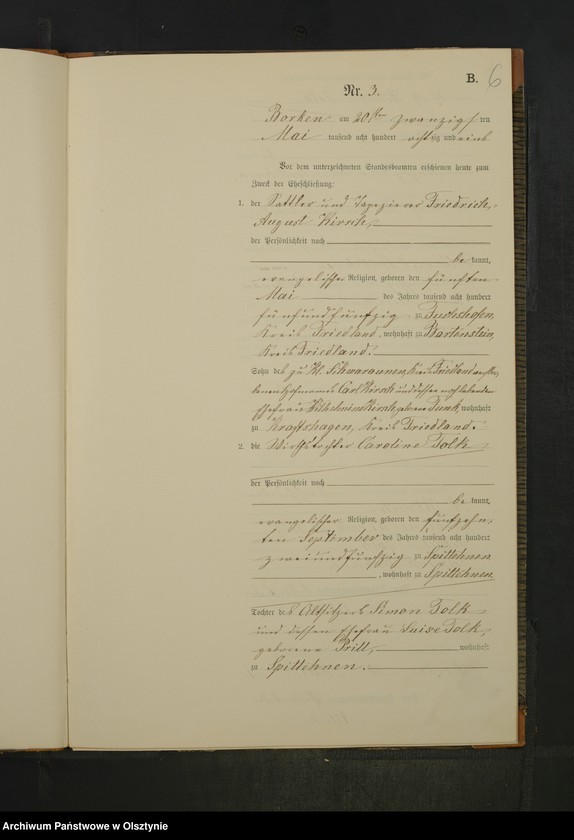 B. 6
Nr. 3.
Borken am 20sten zwanzigsten
Mai tausend acht hundert achtzig und eins
Vor dem unterzeichneten Standesbeamten erschienen heute zum
Zweck der Eheschließung:
1. der Sattler und Tapezierer Friedrich
August Kirsch,
der Persönlichkeit nach
be kannt,
evangelischer Religion, geboren den fünften
Mai des Jahres tausend acht hundert
fünfundfünfzig zu
Kreis Friedland, wohnhaft zu Bartenstein,
Kreis Friedland.
Sohn des zu Kl. Schwaraunen, Kreis Friedland verstor-
benen Hofmanns Carl Kirsch und dessen noch lebenden
Ehefrau Wilhelmine Kirsch, geborene wohnhaft
zu Kraftshagen, Kreis Friedland.
2. die Wirthstochter Caroline Folk
der Persönlichkeit nach
be kannt,
evangelischer Religion, geboren den fünfzehn-
ten September des Jahres tausend acht hundert
zweiundfünfzig zu Spittehnen
, wohnhaft zu Spittehnen
Tochter des Altsitzers Simon Folk
und dessen Ehefrau Luise Folk,
geborene Pritt, wohnhaft
zu Spittehnen.
Archiwum Państwowe w Olsztynie